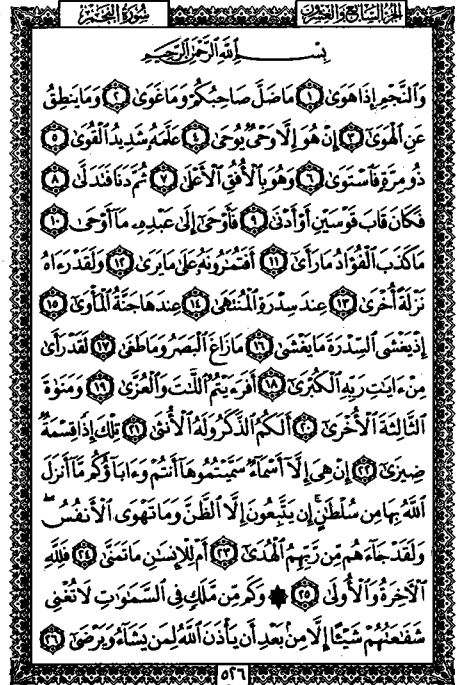 الجزء السابع والعشرون سُورَةُ النَّجْمِ
بِسْمِ اللَّهِ الرَّحْمَٰنِ الرَّحِيمِ
وَالنَّجْمِ إِذَا هَوَىٰ ١ مَا ضَلَّ صَاحِبُكُمْ وَمَا غَوَىٰ ٢ وَمَا يَنطِقُ
عَنِ الْهَوَىٰ ٣ إِنْ هُوَ إِلَّا وَحْيٌ يُوحَىٰ ٤ عَلَّمَهُ شَدِيدُ الْقُوَىٰ ٥
ذُو مِرَّةٍ فَاسْتَوَىٰ ٦ وَهُوَ بِالْأُفُقِ الْأَعْلَىٰ ٧ ثُمَّ دَنَا فَتَدَلَّىٰ ٨
فَكَانَ قَابَ قَوْسَيْنِ أَوْ أَدْنَىٰ ٩ فَأَوْحَىٰ إِلَىٰ عَبْدِهِ مَا أَوْحَىٰ ١٠
مَا كَذَبَ الْفُؤَادُ مَا رَأَىٰ ١١ أَفَتُمَٰرُونَهُ عَلَىٰ مَا يَرَىٰ ١٢ وَلَقَدْ رَءَاهُ
نَزْلَةً أُخْرَىٰ ١٣ عِندَ سِدْرَةِ الْمُنتَهَىٰ ١٤ عِندَهَا جَنَّةُ الْمَأْوَىٰ ١٥
إِذْ يَغْشَى السِّدْرَةَ مَا يَغْشَىٰ ١٦ مَا زَاغَ الْبَصَرُ وَمَا طَغَىٰ ١٧ لَقَدْ رَأَىٰ
مِنْ ءَايَٰتِ رَبِّهِ الْكُبْرَىٰ ١٨ أَفَرَءَيْتُمُ اللَّٰتَ وَالْعُزَّىٰ ١٩ وَمَنَوٰةَ
الثَّالِثَةَ الْأُخْرَىٰ ٢٠ أَلَكُمُ الذَّكَرُ وَلَهُ الْأُنثَىٰ ٢١ تِلْكَ إِذًا قِسْمَةٌ
ضِيزَىٰ ٢٢ إِنْ هِيَ إِلَّا أَسْمَاءٌ سَمَّيْتُمُوهَا أَنتُمْ وَءَابَاؤُكُم مَّا أَنزَلَ
اللَّهُ بِهَا مِن سُلْطَٰنٍ ۚ إِن يَتَّبِعُونَ إِلَّا الظَّنَّ وَمَا تَهْوَى الْأَنفُسُ ۖ
وَلَقَدْ جَاءَهُم مِّن رَّبِّهِمُ الْهُدَىٰ ٢٣ أَمْ لِلْإِنسَٰنِ مَا تَمَنَّىٰ ٢٤ فَلِلَّهِ
الْآخِرَةُ وَالْأُولَىٰ ٢٥ ۞ وَكَم مِّن مَّلَكٍ فِي السَّمَٰوَٰتِ لَا تُغْنِي
شَفَٰعَتُهُمْ شَيْئًا إِلَّا مِن بَعْدِ أَن يَأْذَنَ اللَّهُ لِمَن يَشَاءُ وَيَرْضَىٰ ٢٦
٥٢٦